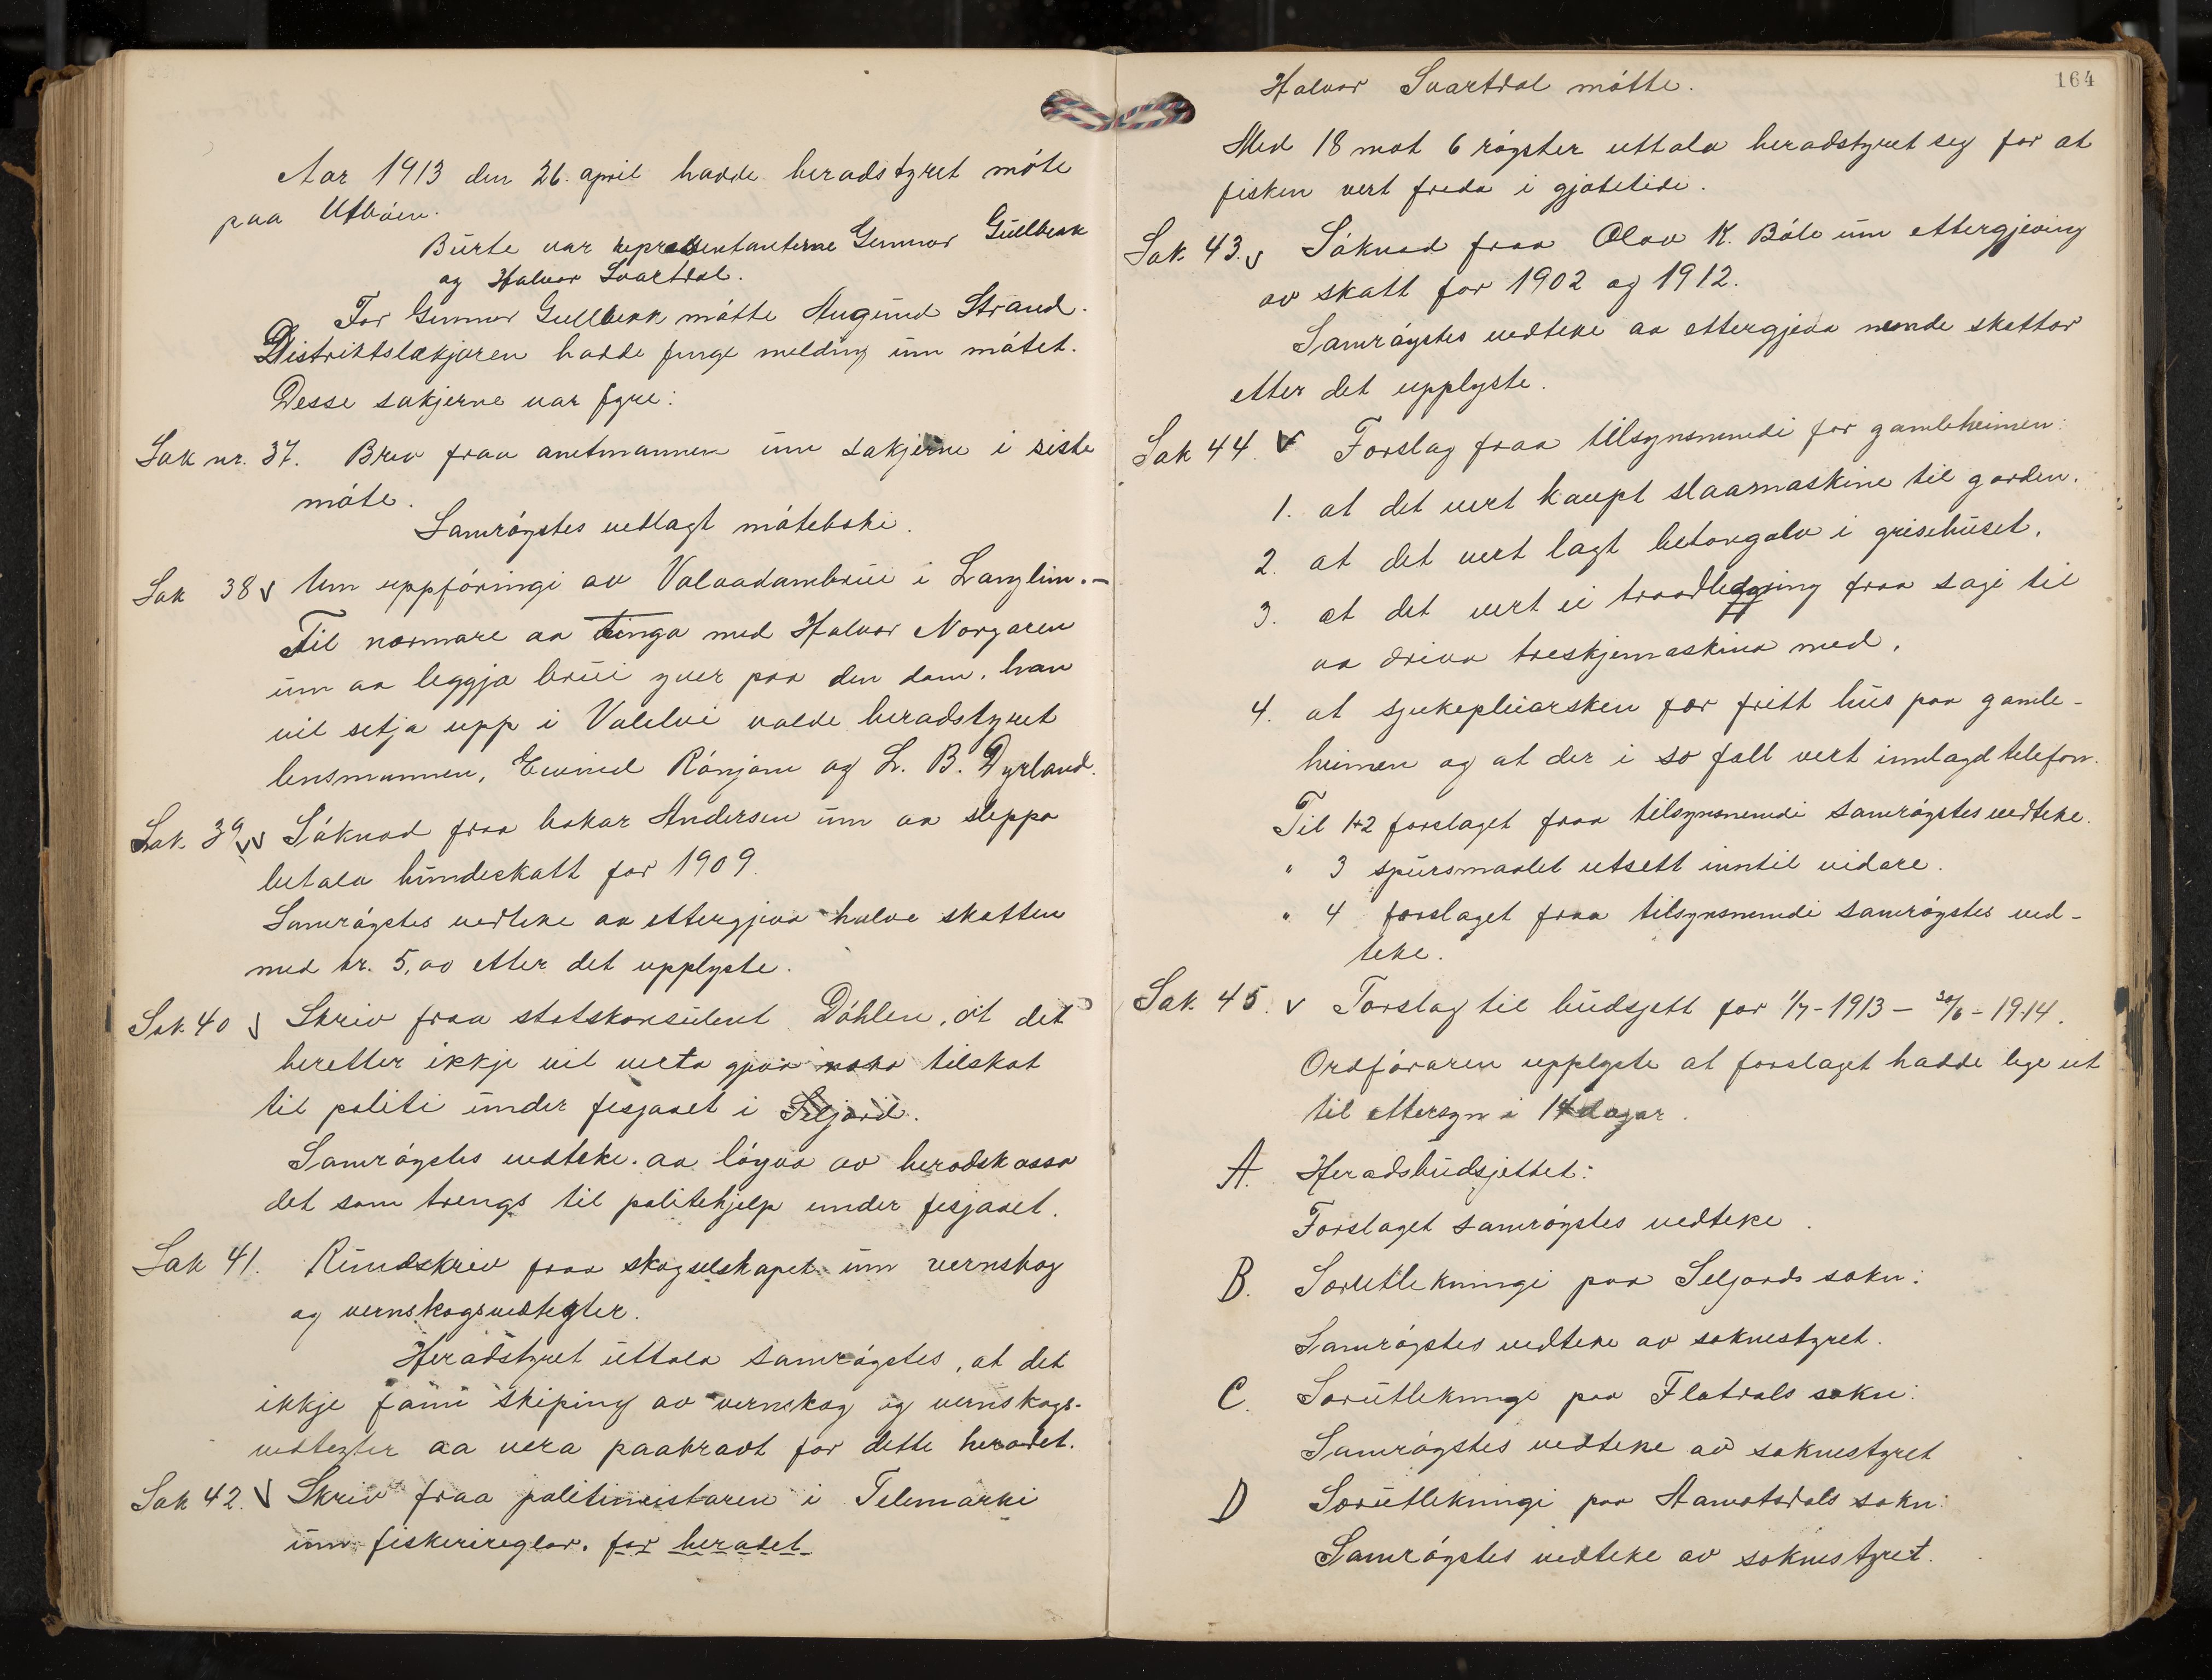 Aar 1913 den 26. april hadde heradstyret móte
paa Utbóen.
Burte var representanterne Gunnar Gullbekk
og Halvor Svartdal.
For Gunnar Gullbekk mótte Augund Strand.
Distriktslækjaren hadde funge melding um mótet.
Desse sakjerne var fyre:
Sak nr. 37. Brev fraa amtmannen um sakjerne i siste
móte.
Samróystes vedlagt móteboki.
Sak 38 v Um uppfóringi av Valaadambrui i Langlim.-
Til nærmare aa tinga med Halvor Norgaren
um aa leggja brui yver paa den dam, han
vil setja upp i Valelvi valde heradstyret
lensmannen, Eivind Rónjom og L. B. Dyrland.
Sak 39 vv Sóknad fraa bakar Andersen um aa sleppa
betala hundeskatt for 1909.
Samróystes vedteke aa ettergjeva halve skatten
med kr. 5,00 etter det upplyste.
Sak 40 v Skriv fraa statskonsulent Dóhlen, at det
heretter ikkje vil verta gjeve noko tilskot
til politi under fesjaaet i Seljord.
Samróystes vedteke aa lóyva av heradskassa
det som trengs til politihjelp under fesjaaet.
Sak 41. Rundskriv fraa skogselskapet um vernskog
og vernskogsvedtegter.
Heradstyret uttala samróystes, at det
ikkje fann skiping av vernskog og vernskogs-
vedtegter aa vera paakravt for dette heradet.
Sak 42. v Skriv fraa politimeistaren i Telemarki
um fiskerireglar. for heradet
164
Halvor Svartdal mótte.
Med 18 mot 6 róyster uttala heradstyret seg for at
fisken vert freda i gjótetidi.
Sak 43. v Sóknad fraa Olav K. Bóle um ettergjeving
av skatt for 1902 og 1912.
Samróystes vedteke aa ettergjeva nemde skattar
etter det upplyste.
Sak 44. v Forslag fraa tilsynsnemdi for gamleheimen:
1. at det vert kaupt slaamaskine til garden.
2. at det vert lagt betongolv i grisehuset.
3. at det vert ei traadleggning fraa sagi til
aa driva treskjemaskina med.
4. at sjukepleiarsken fær fritt hus paa gamle-
heimen og at der i so fall vert innlagd telefon.
Til 1+2 forslaget fraa tilsynsnemdi samróystes vedteke.
" 3 spursmaalet utsett inntil vidare.
" 4 forslaget fraa tilsynsnemdi samróystes ved-
teke.
Sak 45. v Forslag til budsjett for 1/7-1913 - 30/6-1914.
Ordfóraren upplyste at forslaget hadde lege ut
til ettersyn i 14 dagar.
A. Heradsbudsjettet:
Forslaget samróystes vedteke.
B. Særutlekningi paa Seljords sokn:
Samróystes vedteke av soknestyret.
C. Særutlekningi paa Flatdals sokn:
Samróystes vedteke av soknestyret
D Særutlekningi paa Aamotsdals sokn:
Samróystes vedteke av soknestyret.